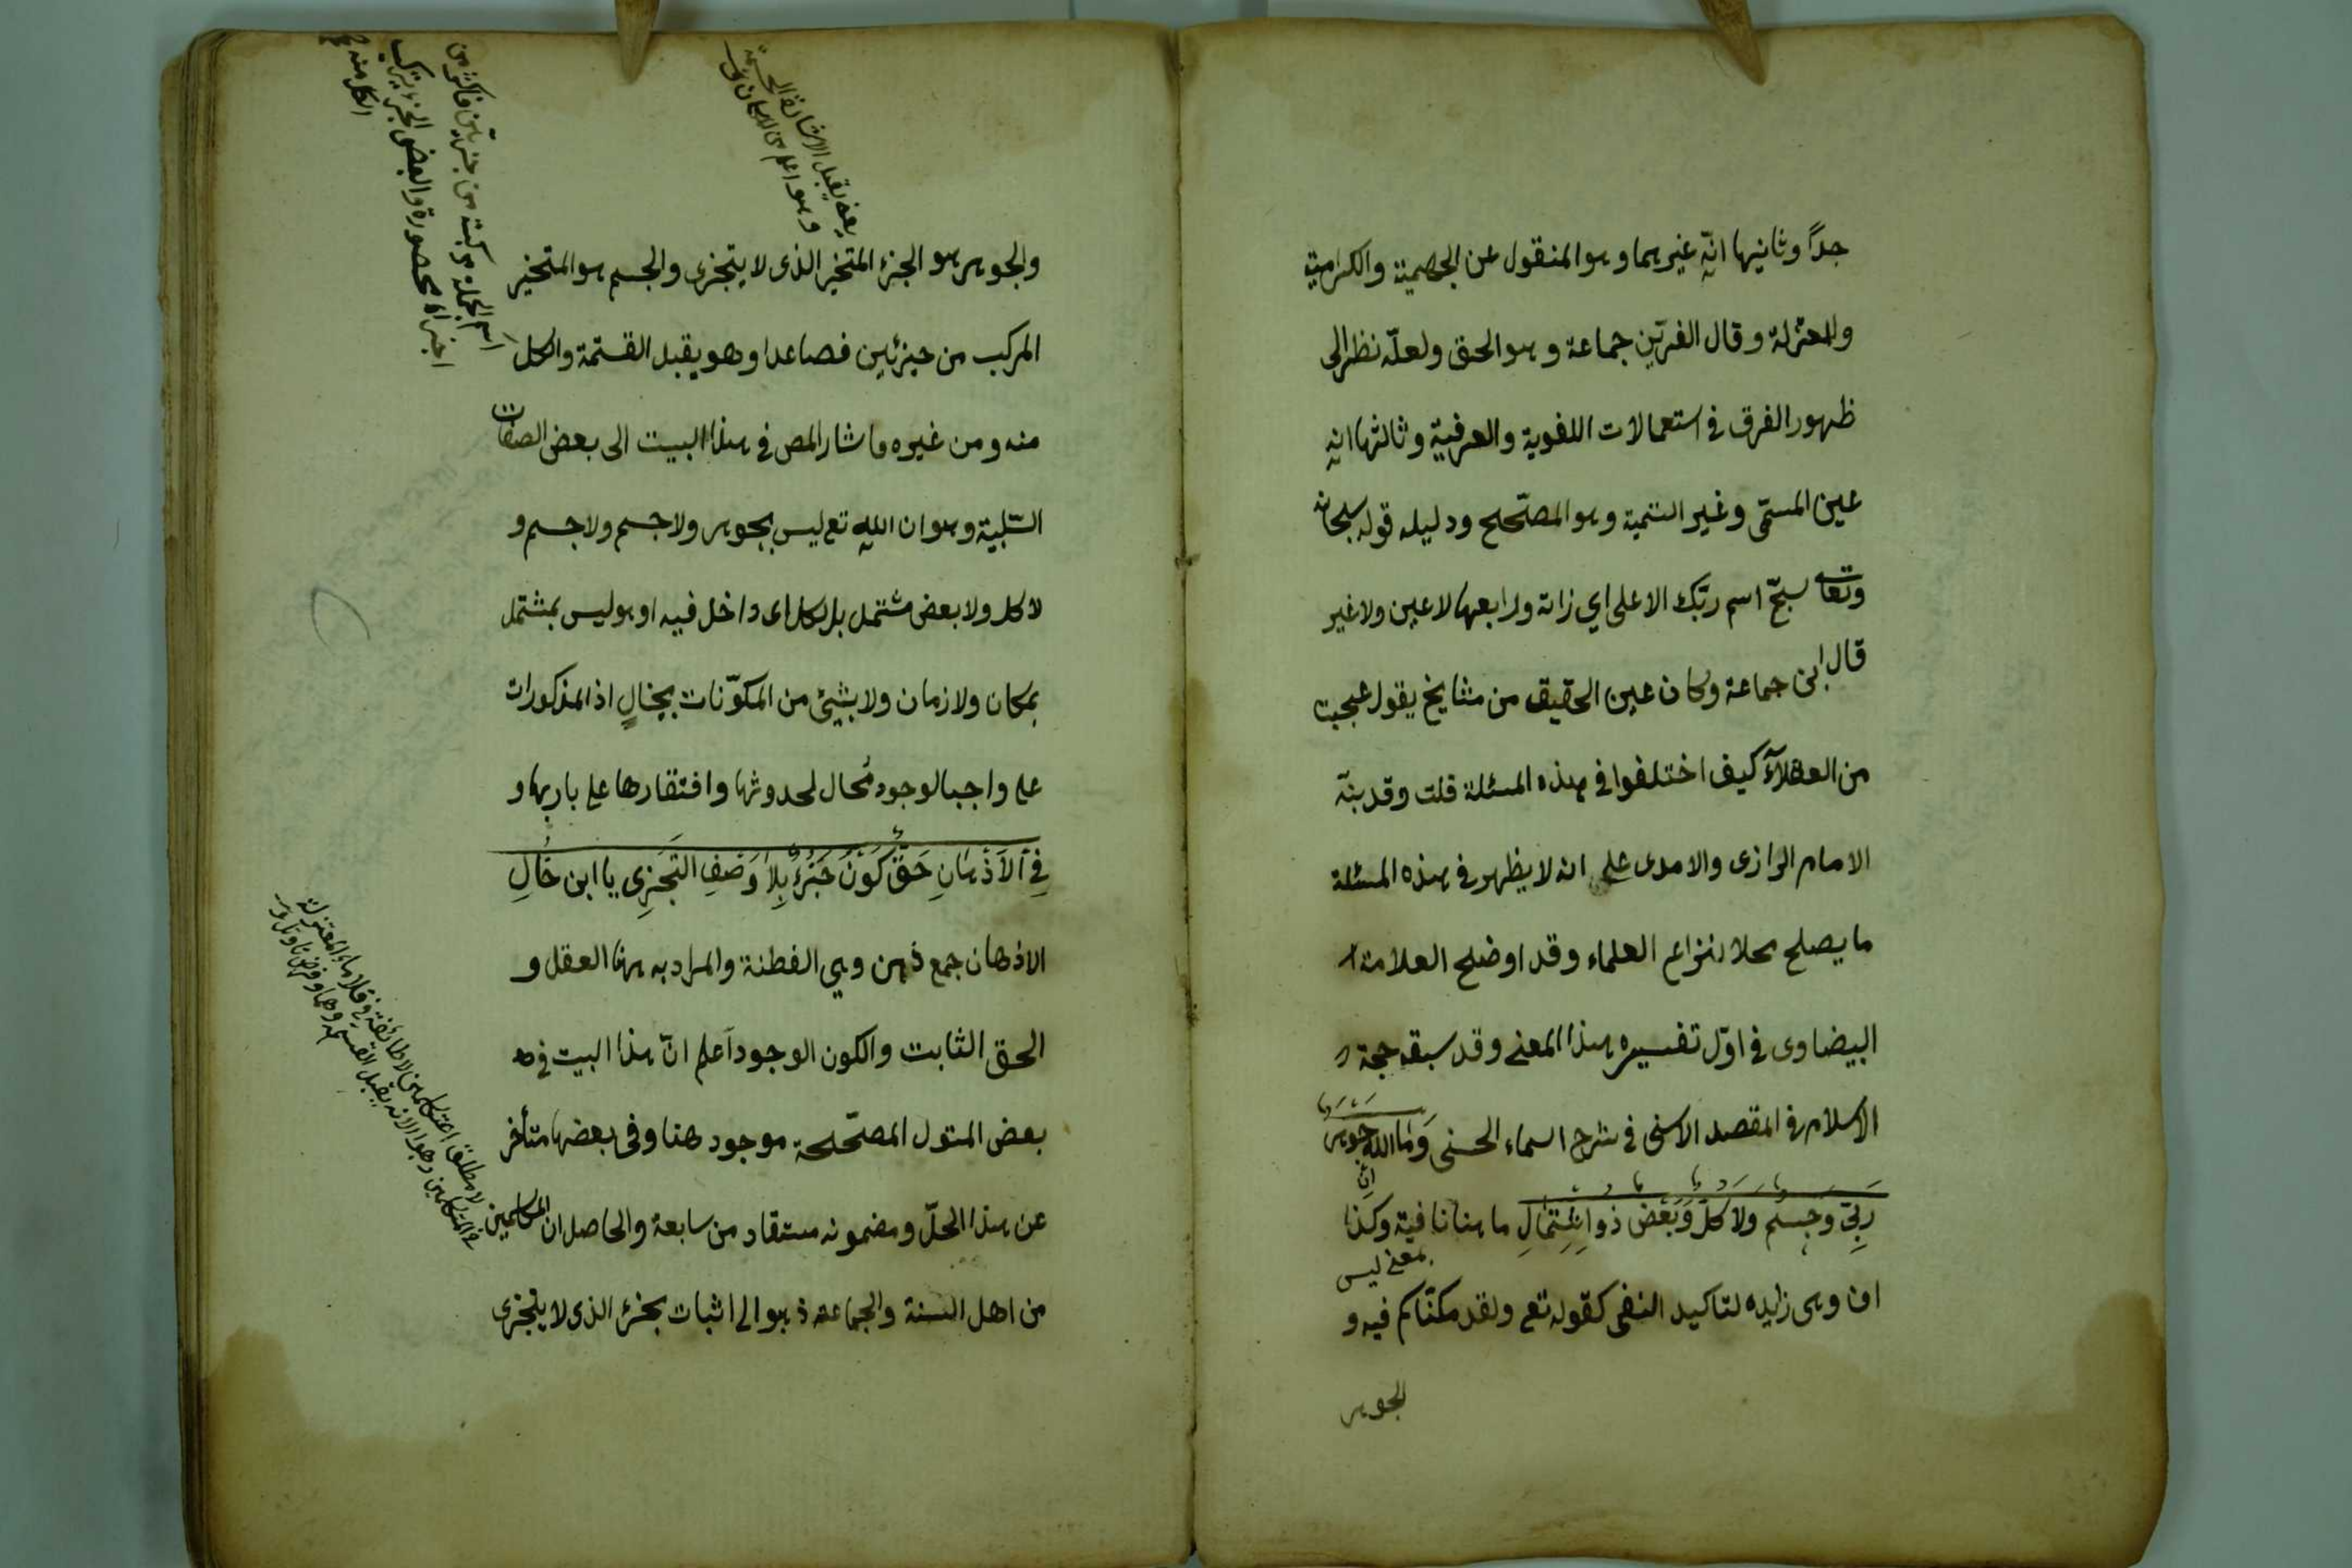 جداً وثانيها انه غيرهما وهو المنقول عن الجهمية والكرامية
والمعتزلة وقال الفربّين جماعة وهو الحق ولعلّه نظر الى
ظهور الفرق في استعمالات اللغوية والعرفيّة وثالثها انه
عين المسمّى وغير التسمية وهو المصحّح ودليله قوله سبحانه
وتعا سبّح اسم ربّك الاعلى اي ذاته ورابعها لا عين ولا غير
قال ابن جماعة وكان عين الحقيق من مشايخ يقول عجبت
من العقلآء كيف اختلفوا في هذه المسئلة قلت وقد بنّه
الامام الرازى والامدى على انه لا يظهر في هذه المسئلة
ما يصلح محلا لنزاع العلماء وقد اوضح العلامة
البيضاوى في اوّل تفسيره هذا المعنى وقد سبقه حجة
الاسلام في المقصد الاسنى في شرح اسماء الحسنى وَمَا اللّه جوهر
رَبّي وَجِسْم وَلَا كُلّ وَبَعْض ذو اشْتِمَالِ ما هنا نافية وكذا
ان
بمعنى ليس
ان وهى زايده لتاكيد النفى كقوله تع ولقد مكنّاكم فيه و
الجوهر
والجوهر هو الجزء المتحيز الذى لا يتجزى والجسم هو المتحيز
المركب من جزئين فصاعدا وهو يقبل القسمة والكل
منه ومن غيره فاشار المص في هذا البيت الى بعض الصفات
السّلبية وهو ان الله تع ليس بجوهر ولا جسم ولا جسم و
لا كل ولا بعض مشتمل بل لكل اى داخل فيه او هو ليس بمشتمل
بمكان ولا زمان ولا بشيئ من المكوّنات بخالٍ اذ المذكورات
على واجب الوجود مُحال لحدوثها وافتقارها على باريها و
فِي الَاذْهَانِ حَقّ كَوْنُ جُزْءٍ بِلَا وَصْفِ التَّجَزِى يا ابن خَالِ
الاذهان جمع ذهن وهي الفطنة والمراد به هنا العقل و
الحق الثابت والكون الوجود اعلم انّ هذا البيت في
بعض المتول المصحّحة موجود هنا وفي بعضها متأخر
عن هذا المحلّ ومضمونه مستفاد من سابعة والحاصل ان المتكلمين
من اهل السنة والجماعة ذهبوا الى اثبات بجزء الذى لا يتجزى
يعنى يقبل الاشارة الحسية
اسم الجملة مركبة من جزئين فاكثر من
اجزاء محصورة والبعض الجزء يتركب
الكل منه
لا مطلق